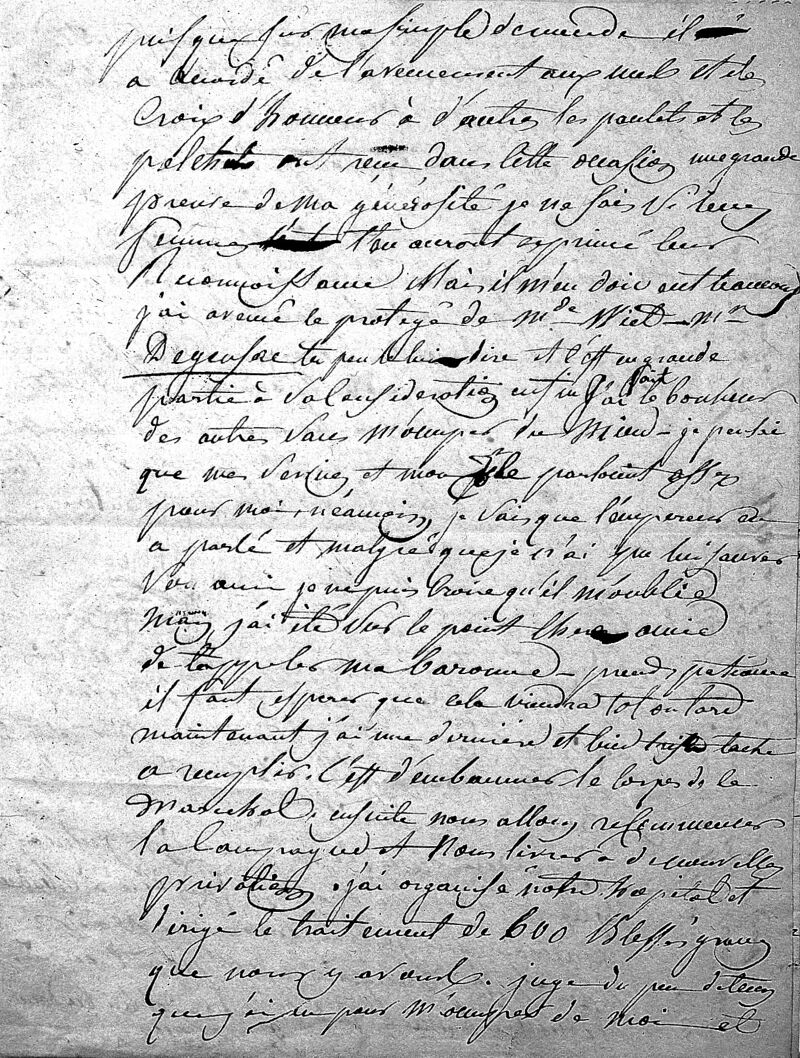 puisque sur ma simple demande il
a accordé de l'avancement aux uns et des
Croix d'honneur à d'autres les paulets et les
ont reçu dans cette occasion une grande
preuve de ma générosité je ne sais si leurs
femmes t'en auront exprimé leur
Reconnoissance Mais ils m'en doivent beaucoup
j'ai avancé le protégé de Mde Wiet Mr
tu peux le lui dire et c'est en grande
partie à sa considération enfin j'ai fait le bonheur
des autres sans m'occuper du Mien je pensai
que mes services et mon zèle parloient assez
pour moi, néamoins, je sais que l'empereur en
a parlé et malgré que je n'ai pu lui sauver
son ami je ne puis croire qu'il m'oublie
Mais j'ai été sur le point chere amie
de t'appeler ma baronne prends patience
il faut esperer que cela viendra tot ou tard
maintenant j'ai une derniere et bien triste tache
a remplir. C'est d'embaumer le corps de le
Marechal, ensuite nous allons recommencer
la Campagne et Nous livrer a de nouvelles
privations. j'ai organisé notre hopital et
dirigé le traitement de 600 Blessés graves
que nous y avons. juge du peu de tems
que j'ai eu pour m'occuper de moi et